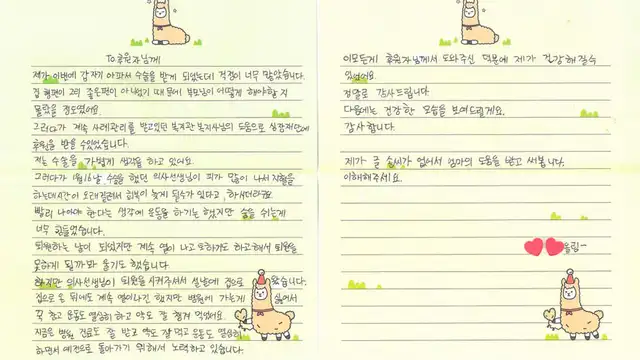 To 후원자님께
제가 이번에 갑자기 아파서 수술을 받게 되었는데 걱정이 너무 많았습니다.
집 형편이 그리 좋은편이 아니었기 때문에 부모님이 어떻게 해야할 지
몰랐을 정도였어요.
그러다가 계속 사례관리를 받고있던 복지관 복지사님의 도움으로
후원을 받을 수있었습니다.
저는 수술을 가볍게 생각을 하고 있어요.
그러다가 1월16날 수술을 했던 의사선생님이 피가 많이 나서 지혈을
하는데 시간이 오래걸려서 회복이 늦게 될수가 있다고 하시더라구요.
빨리 나아야 한다는 생각에 운동을 하기는 했지만 숨을 쉬는게
너무 힘들었습니다.
퇴원하는 날이 되었지만 계속 열이 나고 토하기도 하고해서 퇴원을
못하게 될까봐 울기도 했습니다.
하지만 의사선생님이 퇴원을 시켜주셔서 설날에 집으로 왔습니다.
집으로 온 뒤에도 계속 열이나긴 했지만 병원에 가는게 싫어서
꾹 참고 운동도 열심히 하고 약도 잘 챙겨 먹었어요.
지금은 병원 진료도 잘 받고 약도 잘 먹고 운동도 열심히
하면서 예전으로 돌아가기 위해서 노력하고 있습니다.
이모든게 후원자님께서 도와주신 덕분에 제가 건강해질수
있었어요.
정말로 감사드립니다
다음에는 건강한 모습을 보여드릴게요.
감사합니다.
제가 글 솜씨가 없어서 엄마의 도움을 받고 써봅니다.
이해해주세요.
올림-